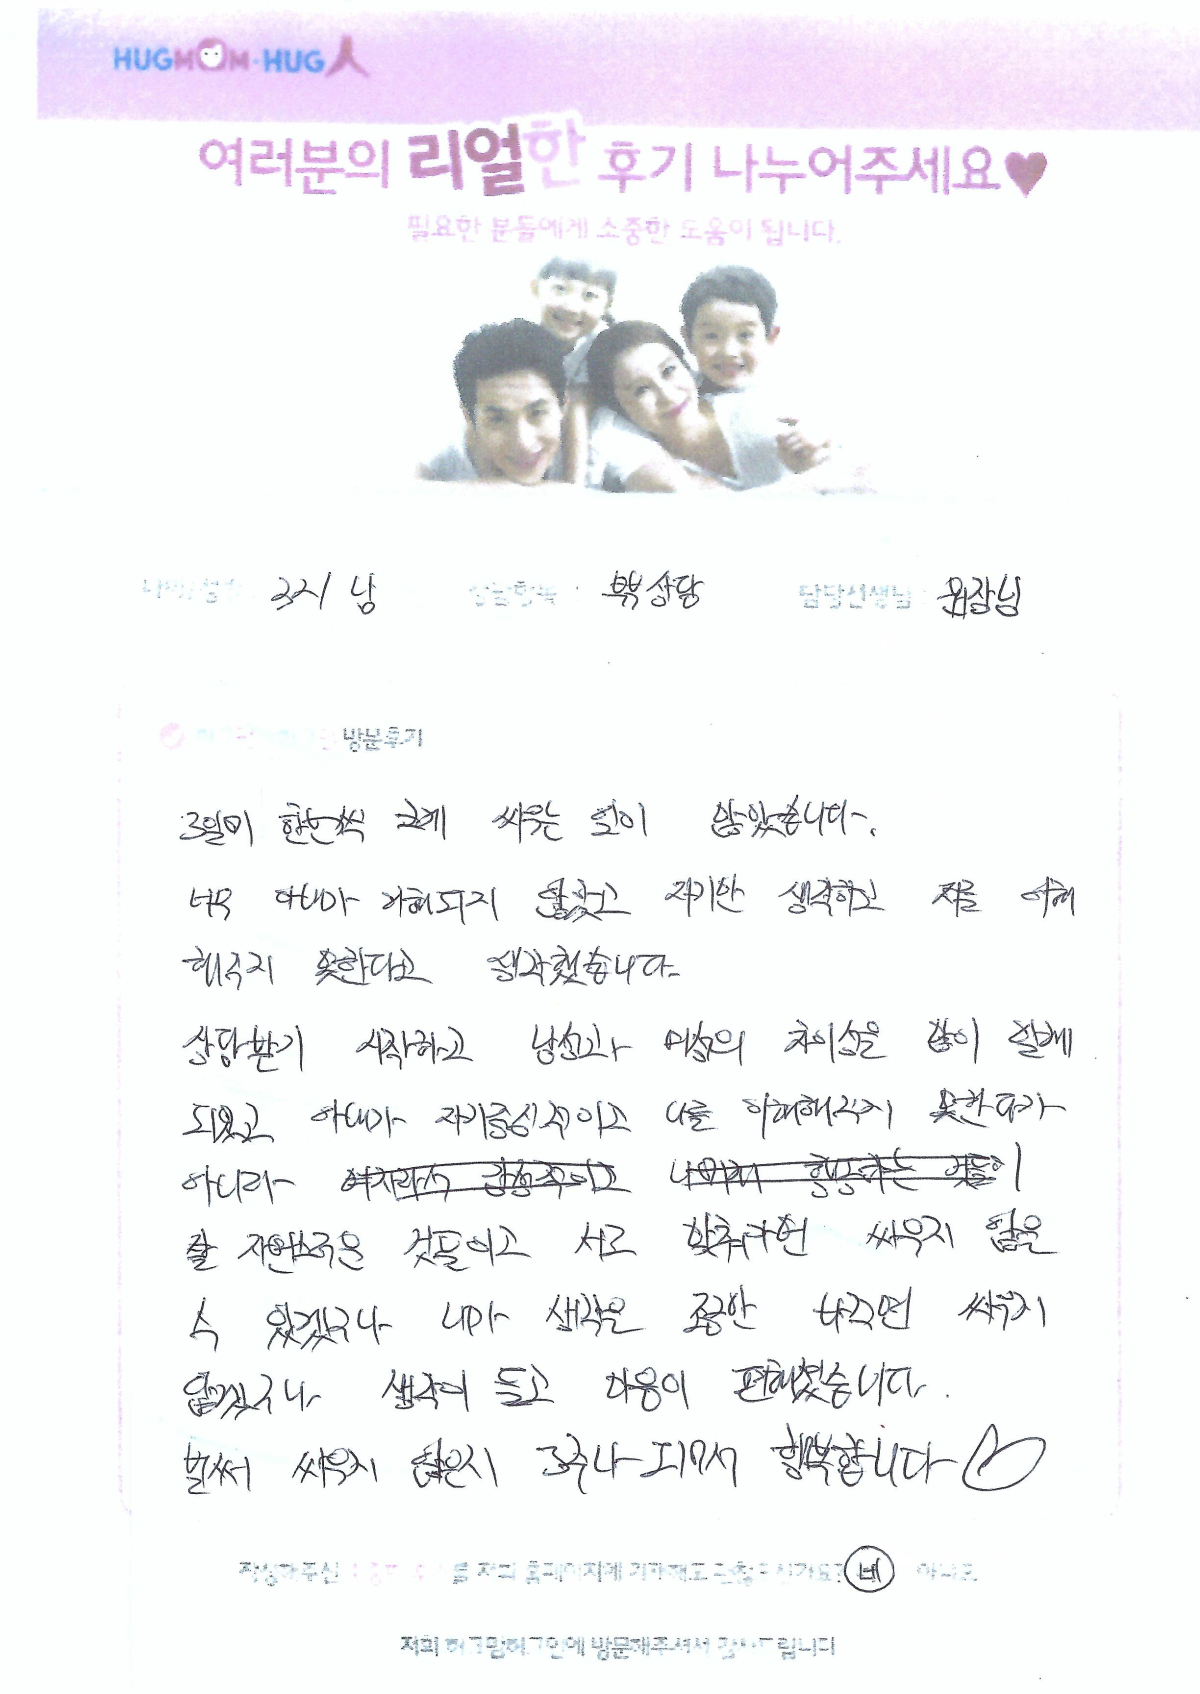 HUGMOM·HUG人
여러분의 리얼한 후기 나누어주세요♥
필요한 분들에게 소중한 도움이 됩니다.
나이/성별 32/ 남 상담항목 : 부부상담 담당선생님 : 원장님
방문후기
3일에 한번씩 크게 싸우는 일이 많았습니다.
너무 아내가 이해되지 않았고 자기만 생각하고 저를 이해
해주지 못한다고 생각했습니다.
상담받기 시작하고 남성과 여성의 차이점을 많이 알게
되었고 아내가 자기중심적이고 나를 이해해주지 못한다가
아니라 여자라서 감정적이고 행동하는 것들이
잘 자연스러운 것들이고 서로 맞춰가면 싸우지 않을
수 있겠구나 내가 생각을 조금만 바꾸면 싸우지
않겠구나 생각이 들고 마음이 편해졌습니다.
벌써 싸우지 않은지 3주나 되면서 행복합니다
작성해주신 를 저희 홈페이지에 기재해도 괜찮으신가요? 네 아니오
저희 허그맘허그인에 방문해주셔서 감사드립니다